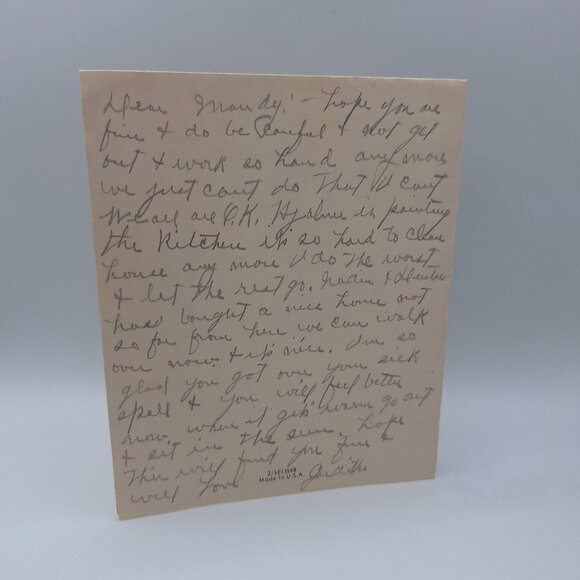 Dear Mandy! - hope you are
fine & do be careful & not get
out & work so hard any more
we just cant do That I cant
We all are O.K. Hjalmer is painting
the Kitchen it's so hard to clean
house any more I do the worst
& let the rest go. &
has bought a nice home not
so far from here we can walk
over now & it's nice. Im so
glad you got over your sick
spell & you will feel better
now when it gets warm go out
& sit in the sun. hope
This will find you fine &
will Love Judith
2/SE1354B
Made In U.S.A.